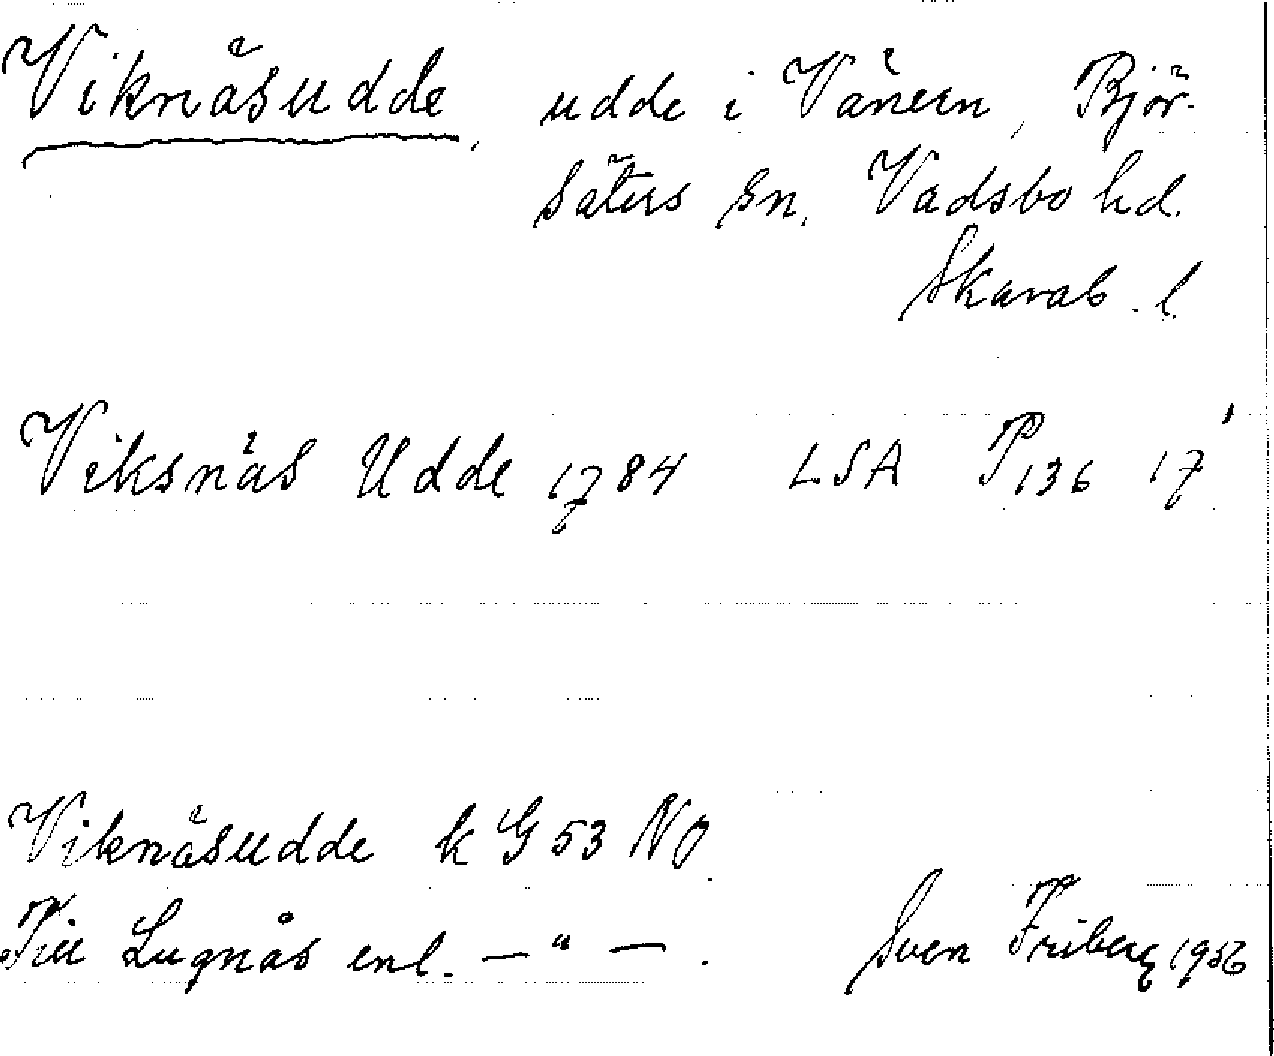 Viknäsudde, udde i Vänern, Björ-
säters sn, Vadsbo hd.
Skarab. l.
Viksnäs Udde 1784 LSA P136 17'
Viknäsudde k G 53 NO.
Till Lugnås enl. — " — .
Sven Friberg 1956